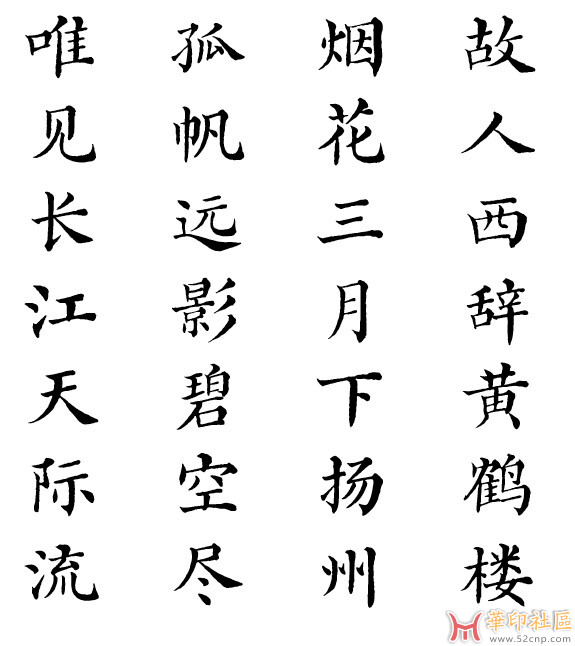 故人西辞黄鹤楼
烟花三月下扬州
孤帆远影碧空尽
唯见长江天际流
華印社區
www.52cnp.com